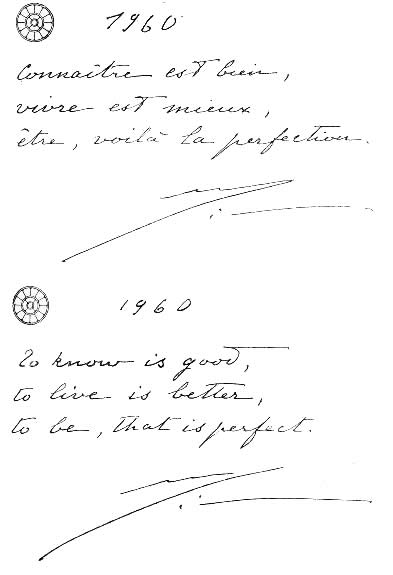 1960
Connaître est bien,
vivre est mieux,
être, voilà la perfection.
1960
To know is good,
to live is better,
to be, that is perfect.